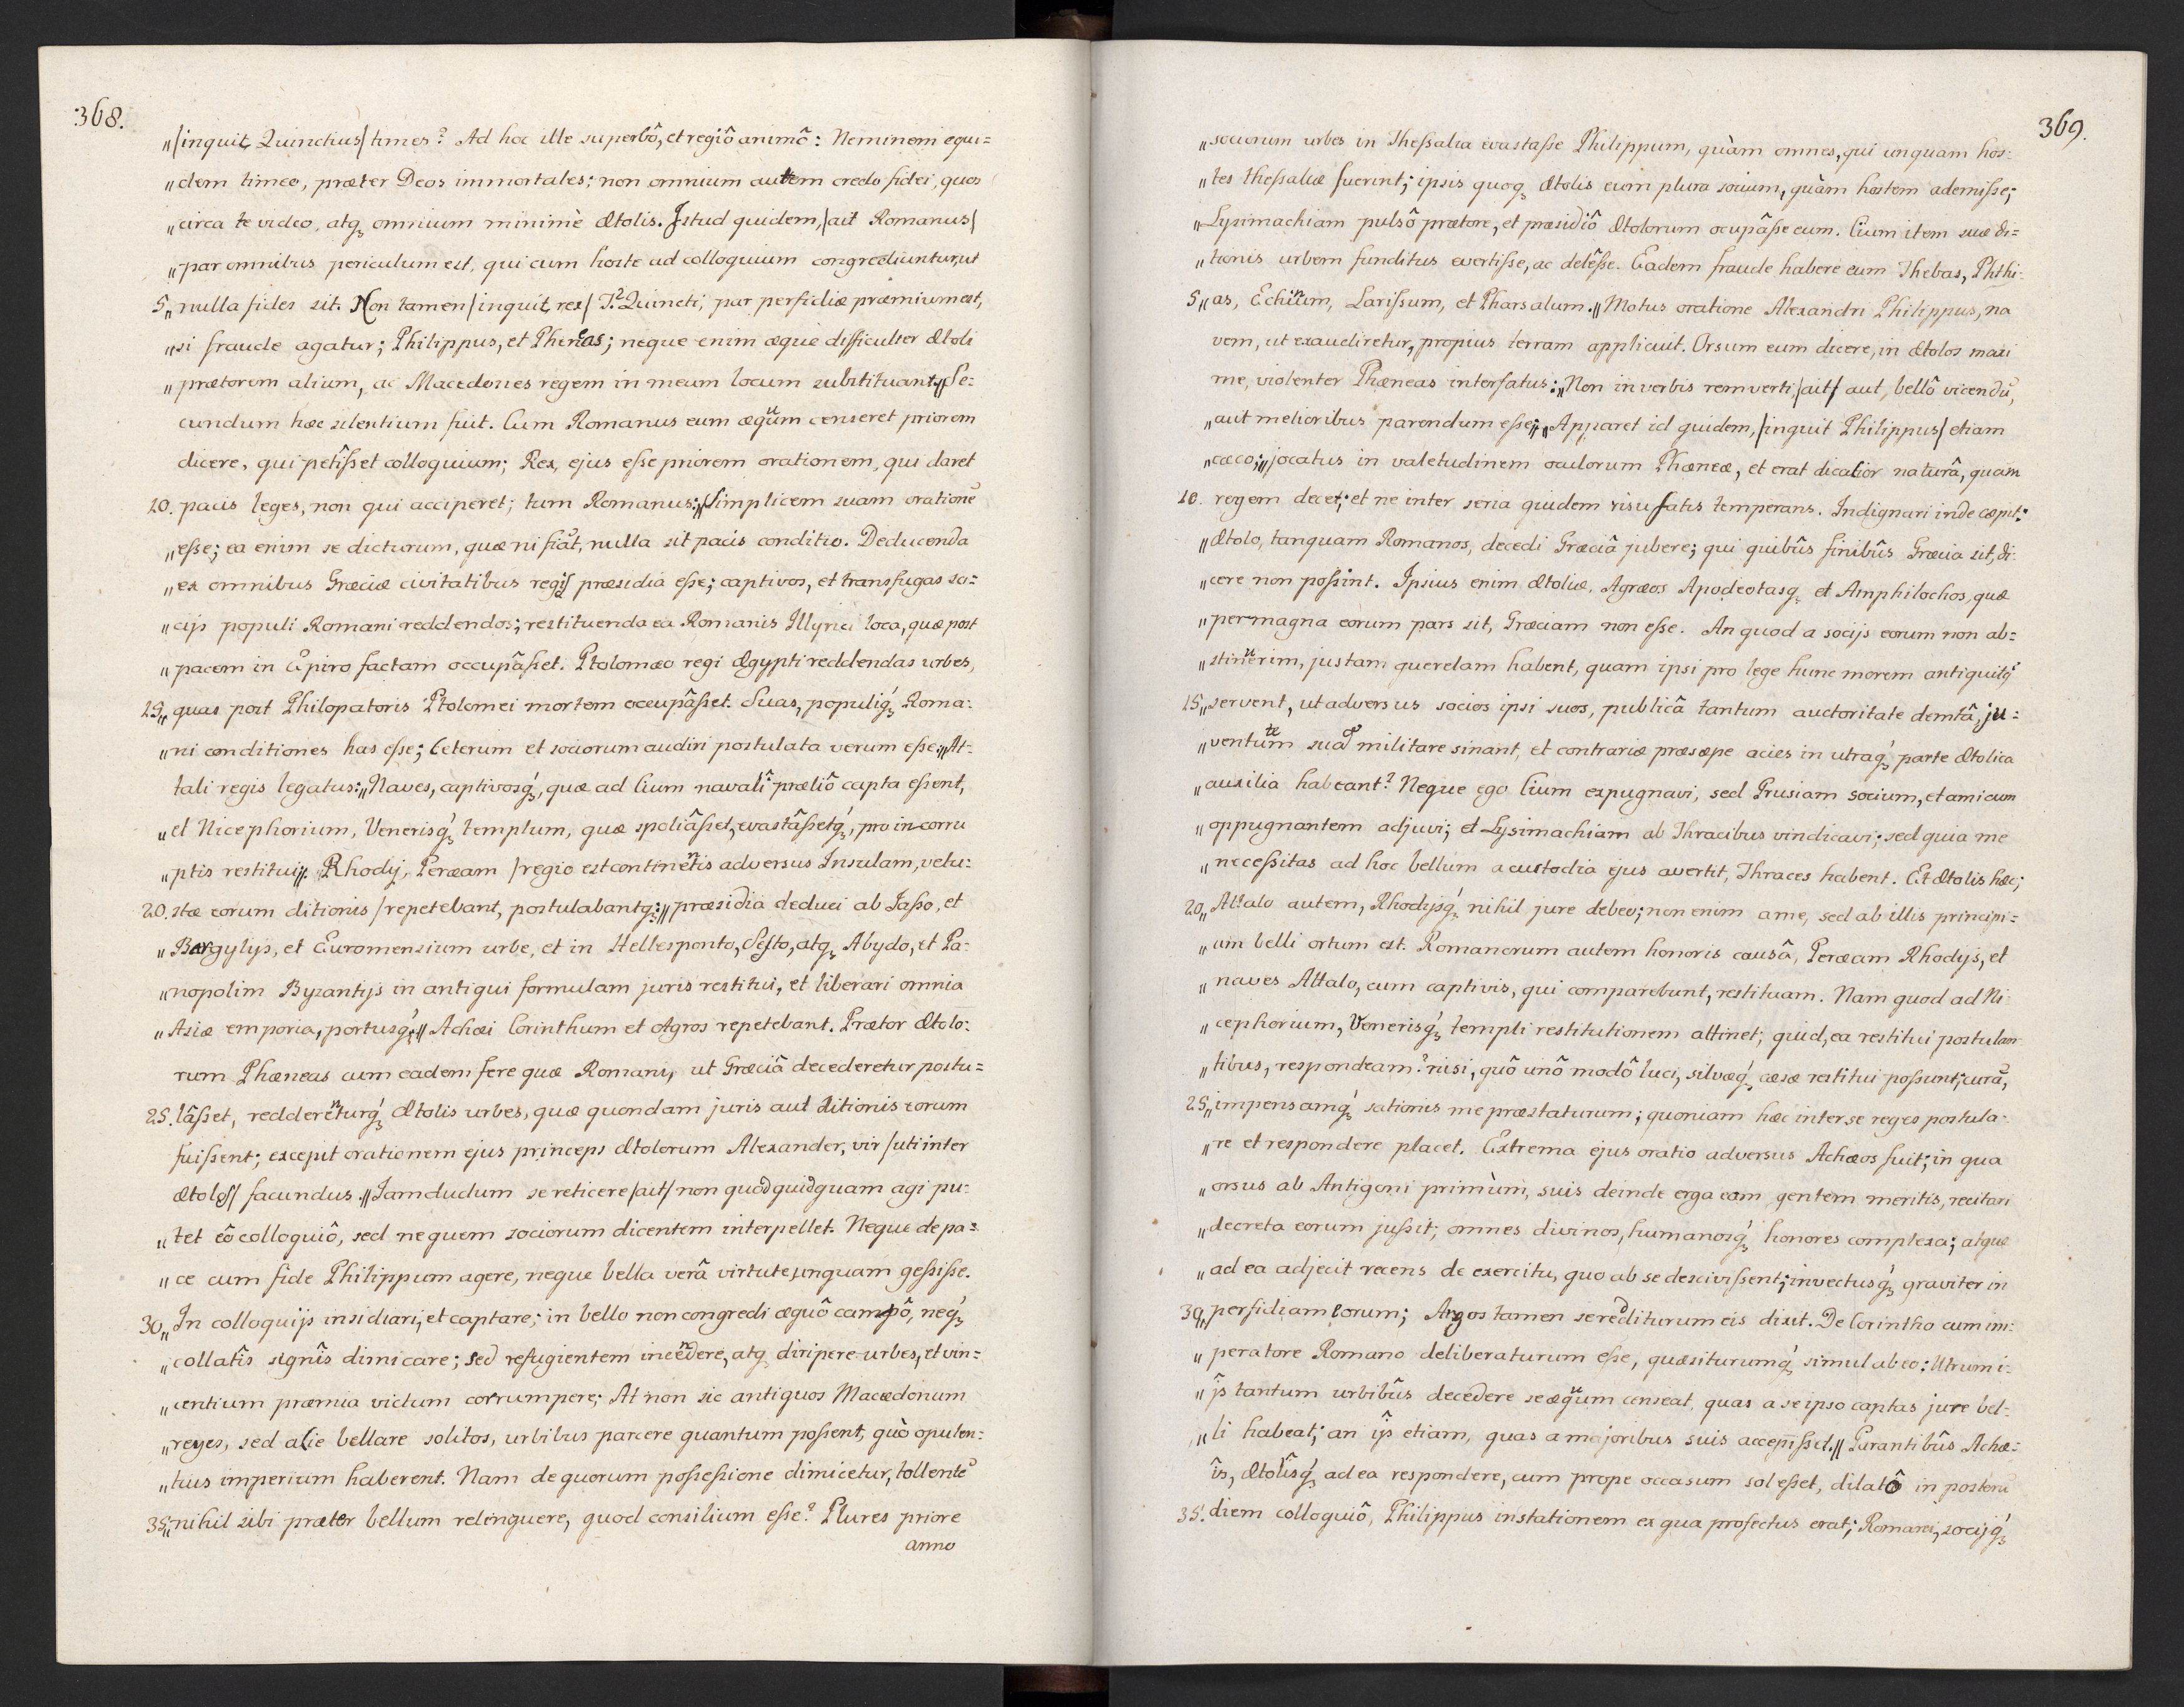 368.
„/inquit Quinctius/ times? Ad hoc ille superbô, et regiô animô: Neminem equi=
„dem timeo, præter Deos immortales; non omnium autem credo fidei, quos
„circa te video, atq₃ omnium minimè Ætolis. Istud quidem, /ait Romanus/
„par omnibus periculum est, qui cum hoste ad colloquium congrediuntur, ut
5„ nulla fides sit. Non tamen /inquit rex/ T. Quincti, par perfidiæ præmium est,
„si fraude agatur; Philippus, et Pheneas; neque enim æque difficulter Ætoli
„prætorem alium, ac Macedones regem in meum locum substituant.„ Se=
cundum hæc silentium fuit. Cum Romanus eum æquum censeret priorem
dicere, qui petîsset colloquium; Rex, ejus esse priorem orationem, qui daret
10. pacis leges, non qui acciperet; tum Romanus:„ Simplicem suam orationē
„esse; ea enim se dicturum, quæ ni fiāt, nulla sit pacis conditio. Deducenda
„ex omnibus Græciæ civitatibus regis præsidia esse; captivos, et transfugas so=
„cijs populi Romani reddendos; restituenda ea Romanis Illyrici loca, quæ post
„pacem in Epiro factam occupâsset. Ptolomæo regi Ægypti reddendas urbes,
15„ quas post Philopatoris Ptolomei mortem occupâsset. Suas, populiq́₃ Roma=
„ni conditiones has esse; Ceterum et sociorum audiri postulata verum esse.„ At=
tali regis legatus:„ Naves, captivosq́₃, quæ ad Cium navali prœliô capta essent,
„et Nicephorium, Venerisq́₃ templum, quæ spoliâsset, evastâssetq́₃, pro incorru
„ptis restitui„. Rhodij, Peræam /regio est continētis adversus Insulam, vetu=
20. stæ eorum ditionis/ repetebant, postulabantq₃:„ præsidia deduci ab Jasso, et
„Bargylijs, et Euromensium urbe, et in Hellesponto, Sesto, atq₃ Abydo, et Pa=
„nopolim Byzantijs in antiqui formulam juris restitui, et liberari omnia
„Asiæ emporia, portusq́₃.„ Achæi Corinthum et Agros repetebant. Prætor Ætolo=
rum Phæneas cum eadem fere quæ Romani, ut Græciâ decederetur postu=
25. lâsset, redderenturq́₃ Ætolis urbes, quæ quondam juris aut ditionis eorum
fuissent; excepit orationem ejus princeps Ætolorum Alexander, vir /uti inter
Ætolos/ facundus.„ Jamdudum se reticere /ait/ non quod quidquam agi pu=
„tet eô colloquiô, sed ne quem sociorum dicentem interpellet. Neque de pa=
„ce cum fide Philippum agere, neque bella verâ virtute unquam gessisse.
30„ In colloquijs insidiari, et captare; in bello non congredi æquô campô, neq́₃
„collatîs signîs dimicare; sed refugientem incendere, atq₃ diripere urbes, et vin=
„centium præmia victum corrumpere; At non sic antiquos Macedonum
„reges, sed acie bellare solitos, urbibus parcere quantum possent, quò opulen=
„tius imperium haberent. Nam de quorum possessione dimicetur, tollentē
35„ nihil sibi præter bellum relinquere, quod consilium esse? Plures priore
anno
369.
„sociorum urbes in Thessalia evastasse Philippum, quàm omnes, qui unquam hos=
„tes thessaliæ fuerint; ipsis quoq₃ Ætolis eum plura socium, quàm hostem ademisse;
„Lysimachiam pulsô prætore, et præsidiô Ætolorum ocupâsse eum. Cium item suæ di=
„tionis urbem funditus evertisse, ac delêsse. Eadem fraude habere eum Thebas, Phthi=
5„ as, Echinum, Larissum, et Pharsalum.„ Motus oratione Alexandri Philippus, na
vem, ut exaudiretur, propius terram applicuit. Orsum eum dicere, in Ætolos maxi
me, violenter Phæneas interfatus:„ Non in verbis rem verti, /ait/ aut, bellô vicendū,
„aut melioribus parendum esse;„ „Apparet id quidem, /inquit Philippus/ etiam
„cæco;„ jocatus in valetudinem oculorum Phæneæ, et erat dicatior naturâ, quam
10. regem decet; et ne inter seria quidem risu satis temperans. Indignari inde cæpit:
„Ætolo, tanquam Romanos, decedi Græciâ jubere; qui quibûs finibûs Græcia sit, di=
„cere non possint. Ipsius enim Ætoliæ, Agræos Apodeotasq₃ et Amphilochos, quæ
„permagna eorum pars sit, Græciam non esse. An quod a socijs eorum non ab=
„stinuerim, justam querelam habent, quam ipsi pro lege hunc morem antiquitq́
15„ servent, ut adversus socios ipsi suos, publicâ tantum auctoritate demtâ, ju=
„ventutem suā militare sinant, et contrariæ præsæpe acies in utraq́₃ parte Ætolica
„auxilia habeant? Neque ego Cium expugnavi, sed Prusiam socium, et amicum
„oppugnantem adjuvi; et Lysimachiam ab Thracibus vindicavi; sed quia me
„necessitas ad hoc bellum a custodia ejus avertit, Thraces habent. Et Ætolis hæc;
20„ Attalo autem, Rhodijsq́₃ nihil jure debeo; non enim a me, sed ab illis principi=
„um belli ortum est. Romanorum autem honoris causâ, Peræam Rhodijs, et
„naves Attalo, cum captivis, qui comparebunt, restituam. Nam quod ad Ni=
„cephorium, Venerisq́₃ templi restitutionem attinet; quid, ea restitui postulan
„tibus, respondeam? nisi, quô unô modô luci, silvæq́₃ cæsæ restitui possunt; curā,
25„ impensamq́₃ sationis me præstaturum; quoniam hæc inter se reges postula=
„re et respondere placet. Extrema ejus oratio adversus Achæos fuit; in qua
„orsus ab Antigoni primùm, suis deinde erga eam gentem meritis, recitari
„decreta eorum jussit; omnes divinos, humanosq́₃ honores complexa; atque
„ad ea adjecit recens de exercitu, quo ab se descivissent; invectusq́₃ graviter in
30„ perfidiam eorum; Argos tamen se redditurum eis dixit. De Corintho cum im=
„peratore Romano deliberaturum esse, quæsiturumq́₃ simul ab eo: Utrum i=
„ĵs tantum urbibûs decedere se æquum censeat, quas a se ipso captas jure bel=
„li habeat; an îjs etiam, quas a majoribus suis accepisset.„ Parantibûs Achæ=
îs, Ætolîsq́₃ ad ea respondere, cum prope occasum sol esset, dilatô in posterū
35. diem colloquiô, Philippus in stationem ex qua profectus erat; Romani, socijq́₃